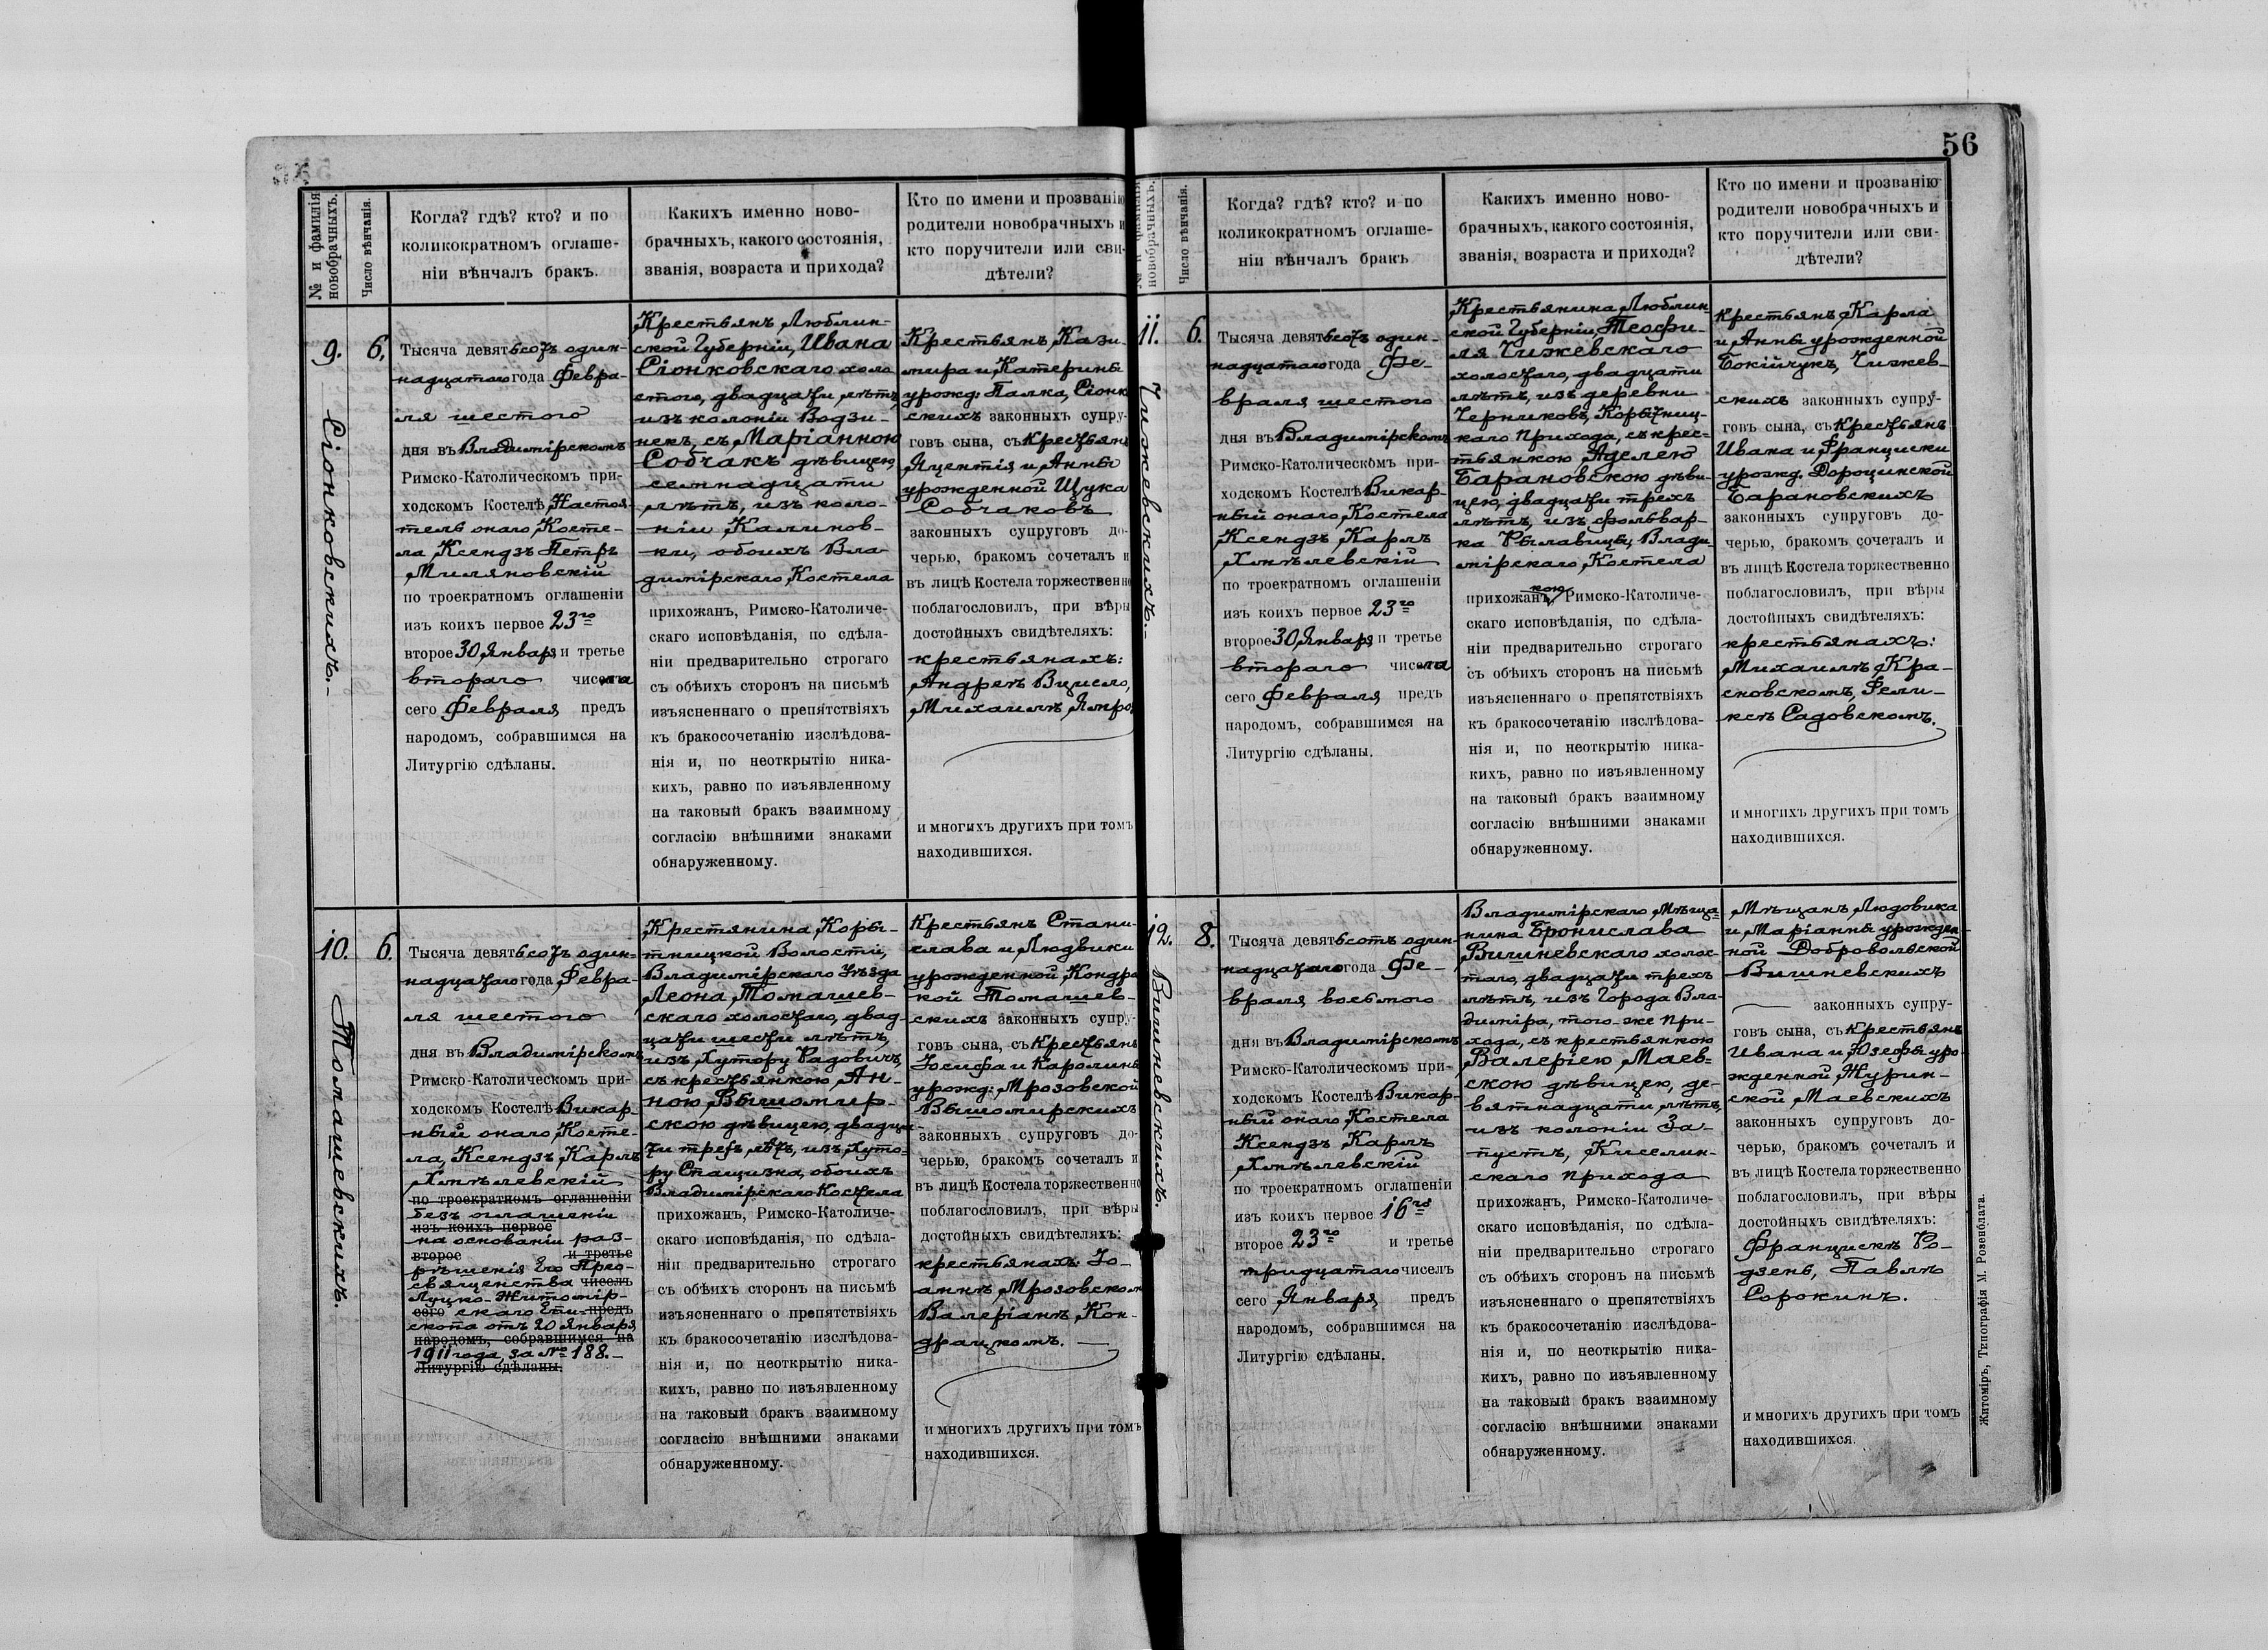 56
№ и фамилія новобрачныхъ.
Число вѣнчанія.
Когда? гдѣ? кто? и по
коликократномъ оглаше-
ніи вѣнчалъ бракъ.
Какихъ именно ново-
брачныхъ, какого состоянія,
званія, возраста и прихода?
Кто по имени и прозванію
родители новобрачныхъ и
кто поручители или сви-
дѣтели?
9.
Сіонковскихъ.-
6.
Тысяча девятьсотъ один-
надцатаго года Февра-
ля шестого
дня въ Владимірскомъ
Римско-Католическомъ при-
ходскомъ Костелѣ Настоя
тель онаго Косте-
ла Ксендзъ Петръ
Миляновскій
по троекратномъ оглашеніи
изъ коихъ первое 23го
второе 30 Января и третье
втораго числа
сего Февраля предъ
народомъ, собравшимся на
Литургію сдѣланы.
Крестьянъ Люблин-
ской Губерніи, Ивана
Сіонковскаго холо
стого, двадцати лѣтъ,
изъ колоніи Водзи-
некъ, съ Маріанною
Собчакъ дѣвицею,
семнадцати
лѣтъ, изъ коло-
ніи Калинов-
ки, обоихъ Вла
димірскаго Костела
прихожанъ, Римско-Католиче-
скаго исповѣданія, по сдѣла-
ніи предварительно строгаго
съ обѣихъ сторонъ на письмѣ
изъясненнаго о препятствіяхъ
къ бракосочетанію изслѣдова-
нія и, по неоткрытію ника-
кихъ, равно по изъявленному
на таковый бракъ взаимному
согласію внѣшними знаками
обнаруженному.
Крестьянъ Кази-
мира и Катерины
урожд: Палка, Сіонк
скихъ законныхъ супру-
говъ сына, съ Крестьян
Яцентія и Анны
урожденной Щука
Собчаковъ
законныхъ супруговъ до-
черью, бракомъ сочеталъ и
въ лицѣ Костела торжественно
поблагословилъ, при вѣры
достойныхъ свидѣтеляхъ:
крестьянахъ:
Андреѣ Вцисло,
Михаилѣ Ямро
и многихъ другихъ при томъ
находившихся.
10.
Томашевскихъ.
6.
Тысяча девятьсотъ один-
надцатаго года Февра-
ля шестого
дня въ Владимірскомъ
Римско-Католическомъ при-
ходскомъ Костелѣ Викар-
ный онаго Косте-
ла, Ксендзъ Карлъ
Хмѣлевскій
по троекратномъ оглашеніи
безъ оглашеніи
изъ коихъ первое
на основаніи раз-
второе и третье
рѣшенія Его Прео-
священства чиселъ
Луцко-Житомір-
сего скаго Епи- предъ
скопа отъ 20 Января
народомъ, собравшимся на
1911 года, за № 188.-
Литургію сдѣланы.
Крестянина Коры-
тницкой Волости,
Владимірскаго Уѣзда
Леона Томашев-
скаго холостаго, двад-
цати шести лѣтъ,
изъ Хутору Радовичъ,
съ крестьянкою Ан-
ною Вышомир-
скою дѣвицею, двадца
ти трехъ лѣтъ, изъ Хуто-
ру Спащизна, обоихъ
Владимірскаго Костела
прихожанъ, Римско-Католиче-
скаго исповѣданія, по сдѣла-
ніи предварительно строгаго
съ обѣихъ сторонъ на письмѣ
изъясненнаго о препятствіяхъ
къ бракосочетанію изслѣдова-
нія и, по неоткрытію ника-
кихъ, равно по изъявленному
на таковый бракъ взаимному
согласію внѣшними знаками
обнаруженному.
Крестьянъ Стани-
слава и Людвики
урожденной Кондра
кой Томашев-
скихъ законныхъ супру-
говъ сына, съ Крестьянъ
Іосифа и Каролины
урожд: Мрозовской
Вышомирскихъ
законныхъ супруговъ до-
черью, бракомъ сочеталъ и
въ лицѣ Костела торжественно
поблагословилъ, при вѣры
достойныхъ свидѣтеляхъ:
крестьянахъ: Іо-
аннѣ Мрозовском
Валеріанѣ Кон-
драцкомъ.
и многихъ другихъ при томъ
находившихся.
№ и фамилія новобрачныхъ.
Число вѣнчанія.
Когда? гдѣ? кто? и по
коликократномъ оглаше-
ніи вѣнчалъ бракъ
Какихъ именно ново-
брачныхъ, какого состоянія,
званія, возраста и прихода?
Кто по имени и прозванію
родители новобрачныхъ и
кто поручители или сви-
дѣтели?
11.
Чижевскихъ.-
6.
Тысяча девятьсотъ один-
надцатаго года Фе-
враля шестого
дня въ Владимірскомъ
Римско-Католическомъ при-
ходскомъ Костелѣ Викар-
ный онаго Костела
Ксендзъ Карлъ
Хмѣлевскій
по троекратномъ оглашеніи
изъ коихъ первое 23го
второе 30 Января и третье
втораго числа
сего Февраля предъ
народомъ, собравшимся на
Литургію сдѣланы.
Крестьянина Люблин-
ской Губерніи Теофи-
ля Чижевскаго
холостаго, двадцати
лѣтъ, изъ деревни
Черниковъ, Корытниц-
каго прихода, съ крес-
тьянкою Аделею
Барановскою дѣви-
цею, двадцати трехъ
лѣтъ, изъ фольвар-
ка Рылавицы, Влади-
мірскаго Костела
прихожанкою, Римско-Католиче-
скаго исповѣданія, по сдѣла-
ніи предварительно строгаго
съ обѣихъ сторонъ на письмѣ
изъясненнаго о препятствіяхъ
къ бракосочетанію изслѣдова-
нія и, по неоткрытію ника-
кихъ, равно по изъявленному
на таковый бракъ взаимному
согласію внѣшними знаками
обнаруженному.
Крестьянъ Карла
и Анны урожденной
Бокійчукъ, Чижев-
скихъ законныхъ супру-
говъ сына, съ Крестьянъ
Ивана и Франциски
урожд. Дороцинской
Барановскихъ
законныхъ супруговъ до-
черью, бракомъ сочеталъ и
въ лицѣ Костела торжественно
поблагословилъ, при вѣры
достойныхъ свидѣтеляхъ:
крестьянахъ:
Михаилѣ Кра-
сновскомъ, Фели-
ксѣ Садовскомъ.
и многихъ другихъ при томъ
находившихся.
12.
Вишневскихъ.
8.
Тысяча девятьсотъ один-
надцатаго года Фе-
враля восьмого
дня въ Владимірскомъ
Римско-Католическомъ при-
ходскомъ Костелѣ Викар-
ный онаго Костела
Ксендзъ Карлъ
Хмѣлевскій
по троекратномъ оглашеніи
изъ коихъ первое 16го
второе 23го и третье
тридцатаго чиселъ
сего Января предъ
народомъ, собравшимся на
Литургію сдѣланы.
Владимірскаго Мѣща-
нина Бронислава
Вишневскаго холос-
таго, двадцати трехъ
лѣтъ, изъ Города Вла-
диміра, того-же при-
хода, съ крестьянкою
Валеріею Маев-
скою дѣвицею, де-
вятнадцати лѣтъ,
изъ колоніи За-
пустъ, Киселин-
скаго прихода
прихожанъ, Римско-Католиче-
скаго исповѣданія, по сдѣла-
ніи предварительно строгаго
съ обѣихъ сторонъ на письмѣ
изъясненнаго о препятствіяхъ
къ бракосочетанію изслѣдова-
нія и, по неоткрытію ника-
кихъ, равно по изъявленному
на таковый бракъ взаимному
согласію внѣшними знаками
обнаруженному.
Мѣщанъ Людовика
и Маріанны урожден-
ной Добровольской
Вишневскихъ
законныхъ супру-
говъ сына, съ Крестьянъ
Ивана и Юзефы уро-
жденной Журин-
ской Маевскихъ
законныхъ супруговъ до-
черью, бракомъ сочеталъ и
въ лицѣ Костела торжественно
поблагословилъ, при вѣры
достойныхъ свидѣтеляхъ:
Францискѣ Ро-
дзень, Павлѣ
Сорокинъ.
и многихъ другихъ при томъ
находившихся.
Житоміръ, Типографія М. Розенблата.